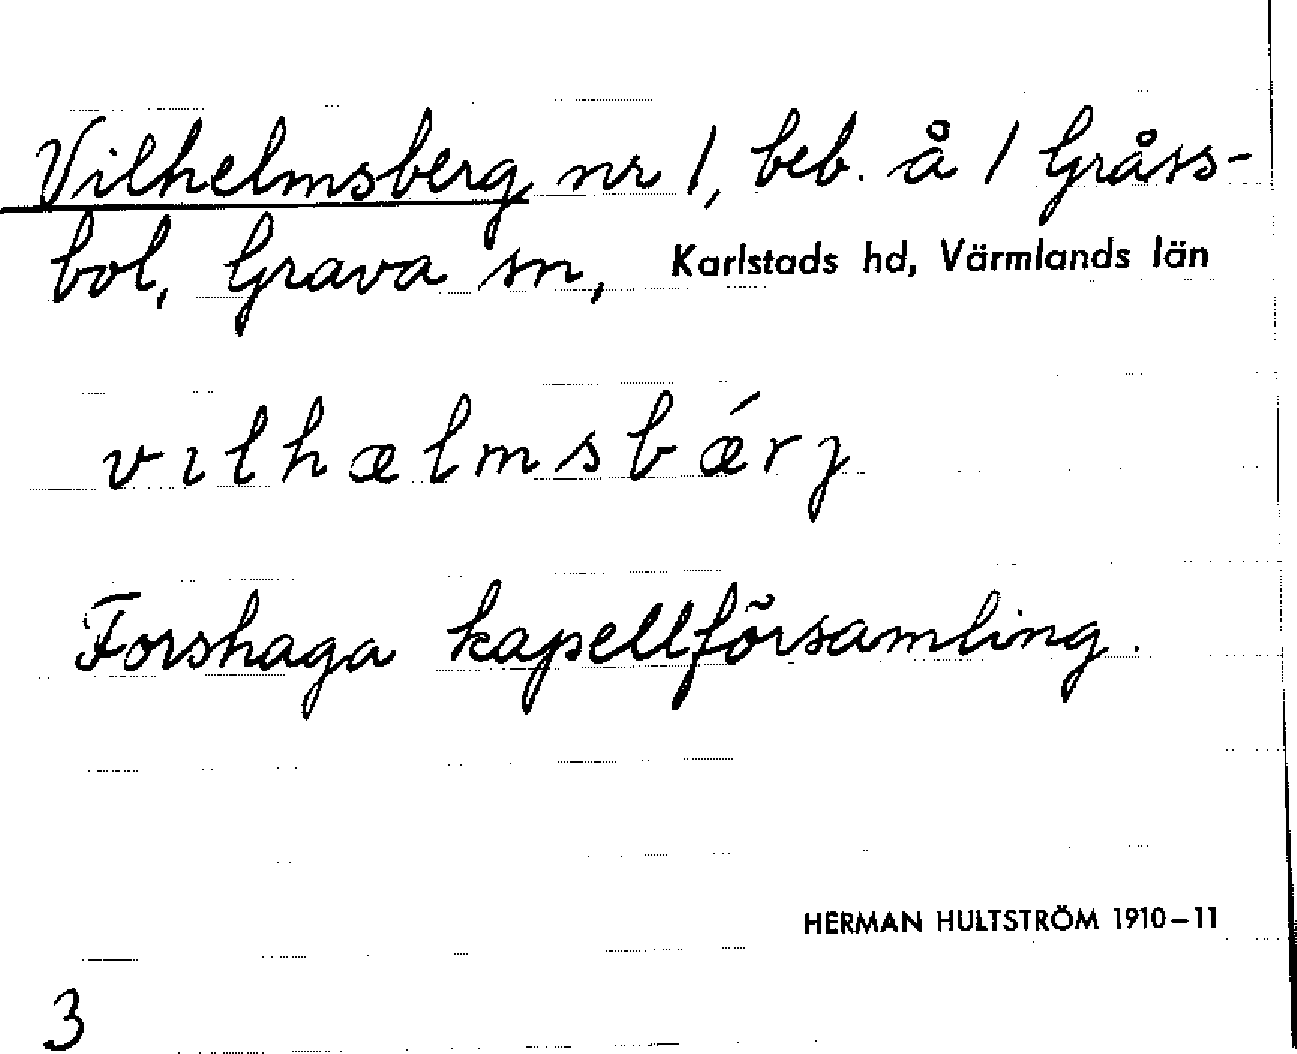 Vilhelmsberg nr 1, beb. å 1 Gråss-
bol, Grava sn, Karlstads hd, Värmlands län
vılhælmsbǽrȷ
Forshaga kapellförsamling.
HERMAN HULTSTRÖM 1910–11
3